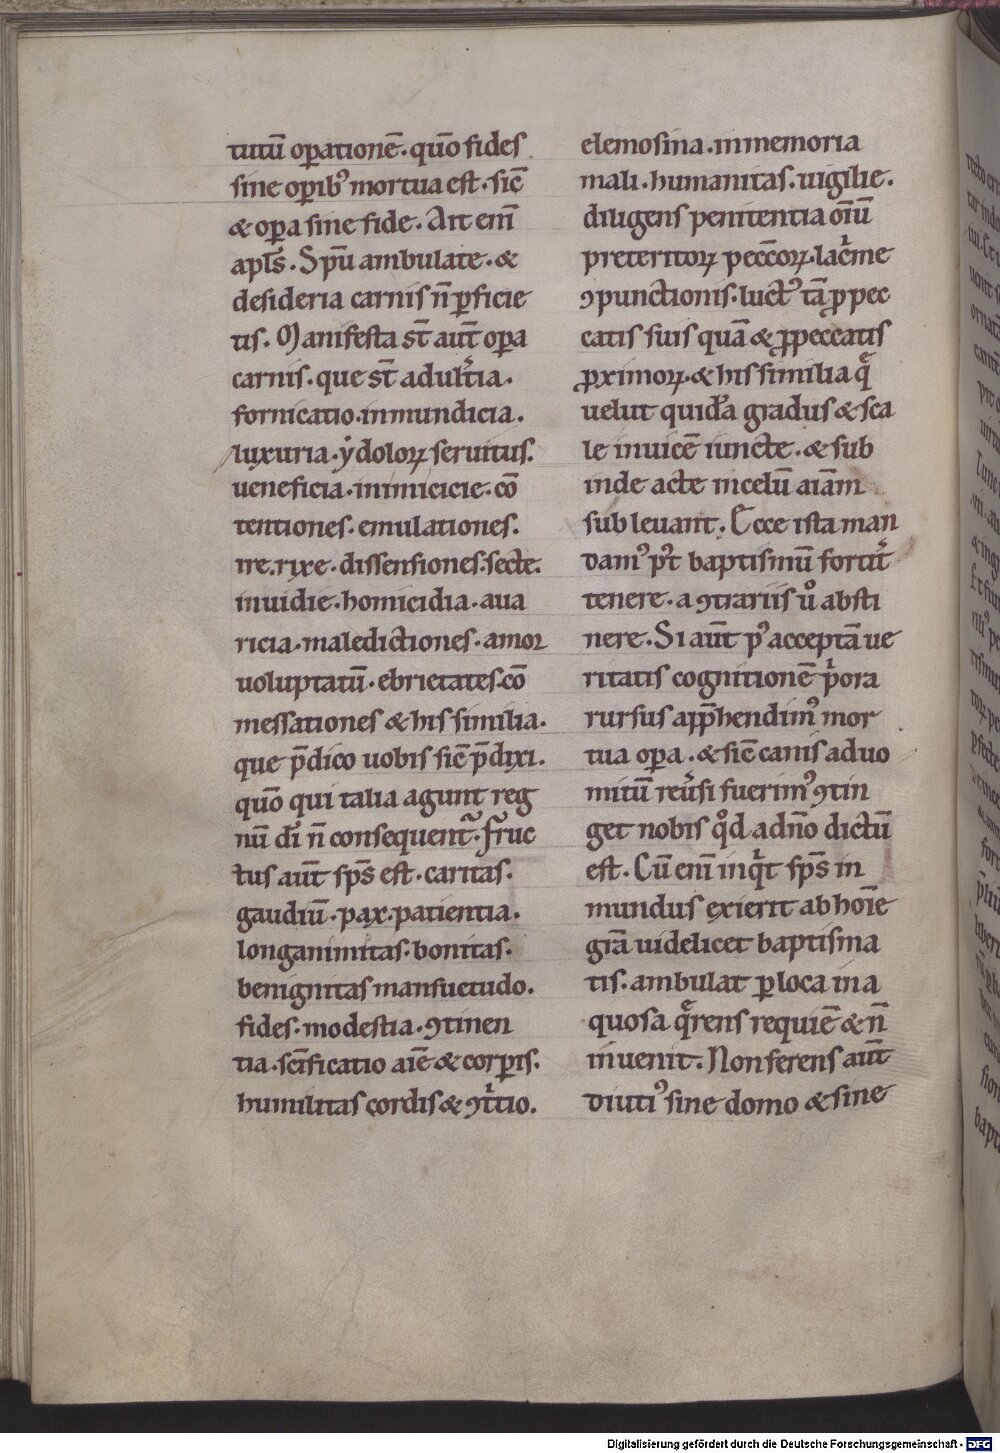 tutū oꝑationē. quō fides
sine oꝑib᾽ mortua est. sic̄
& oꝑa sine fide. Ait eni̅
apl̄s. Spū ambulate. &
desideria carnis n̄ ꝑficie
tis. Manifesta st̄ aut̄ oꝑa
carnis. que st̄ adult̓ia.
fornicatio. inmundicia.
luxuria. ẏdoloꝝ seruitus.
ueneficia. inimicicie. cō
tentiones. emulationes.
ire. rixe. dissensiones. secte.
inuidie. homicidia. aua
ricia. maledictiones. amor
uoluptatū. ebrietates. cō
messationes & his similia.
que p̄dico uobis sic̄ p̄dixi.
quō qui talia agunt reg
nū dī n̄ consequent᷑. Fruc
tus aut̄ sp̄s est. caritas.
gaudiū. pax. patientia.
longanimitas. bonitas.
benignitas mansuetudo.
fides. modestia. ꝯtinen
tia. sc̄ificatio aīe & corꝑis.
humilitas cordis & ꝯt̓tio.
elemosina. inmemoria
mali. humanitas. uigilie.
diligens penitentia oīū
preteritoꝝ pecc̄oꝝ. lac̓me
ꝯpunctionis. luct᾽ tā ꝓ pec
catis suis quā & ꝓ peccatis
ꝓximoꝝ. & his similia q̄
uelut quid̄a gradus & sca
le inuicē iuncte. & sub
inde acte in celū aiām
subleuant. Ecce ista man
dam᾽ p᾽t baptismū fortit̓
tenere. a ꝯtrariis ů absti
nere. Si aut̄ p᾽ acceptā ue
ritatis cognitionē p̓ora
rursus app̄hendim᾽ mor
tua oꝑa. & sic̄ canis ad uo
mitū reu̓si fuerim᾽ ꝯtin
get nobis qd̊ a dn̄o dictū
est. Cū eni̅ inq̓t sp̄s in
mundus exierit ab hoīe
gr̄a uidelicet baptisma
tis. ambulat ꝑ loca ina
quosa q̄rens requiē & n̄
inuenit. Non ferens aut̄
diuti᾽ sine domo & sine
Digitalisierung gefördert durch die Deutsche Forschungsgemeinschaft - DFG